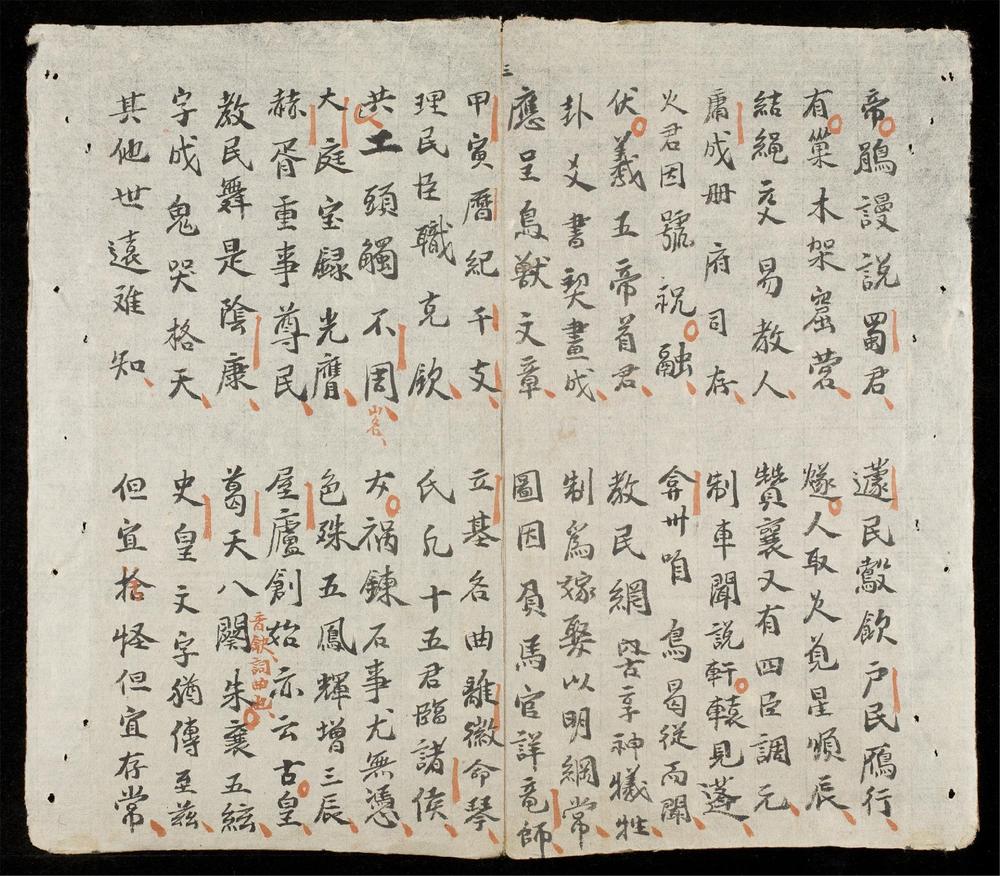 三
帝鵑謾說蜀君
蘧民鷇飲户民鴈行
有巢木架窟營
燧人取火覓星順辰
結繩交易教人
贊襄又有四臣調元
庸成册府司存
制車聞說軒轅見蓬
火君因號祝融
弇州咱鳥曷從而聞
伏羲五帝首君
教民網罟享神犧牲
卦爻書契畫成
制爲嫁娶以明綱常
應呈鳥獸文章
圖因負馬官詳竜師
甲寅曆紀干支
立基各曲離徽命琴
理民臣職克欽
氏凡十五君臨諸侯
共工頭觸不周
山名
女媧鍊石事尤無憑
大庭宝録光膺
色殊五鳳輝增三辰
赫胥重事尊民
屋廬創始亦云古皇
教民舞是陰康
葛天八闋朱襄五絃
音缺詞曲也
字成鬼哭格天
史皇文字猶傳至茲
其他世遠难知
但宜捨怪但宜存常